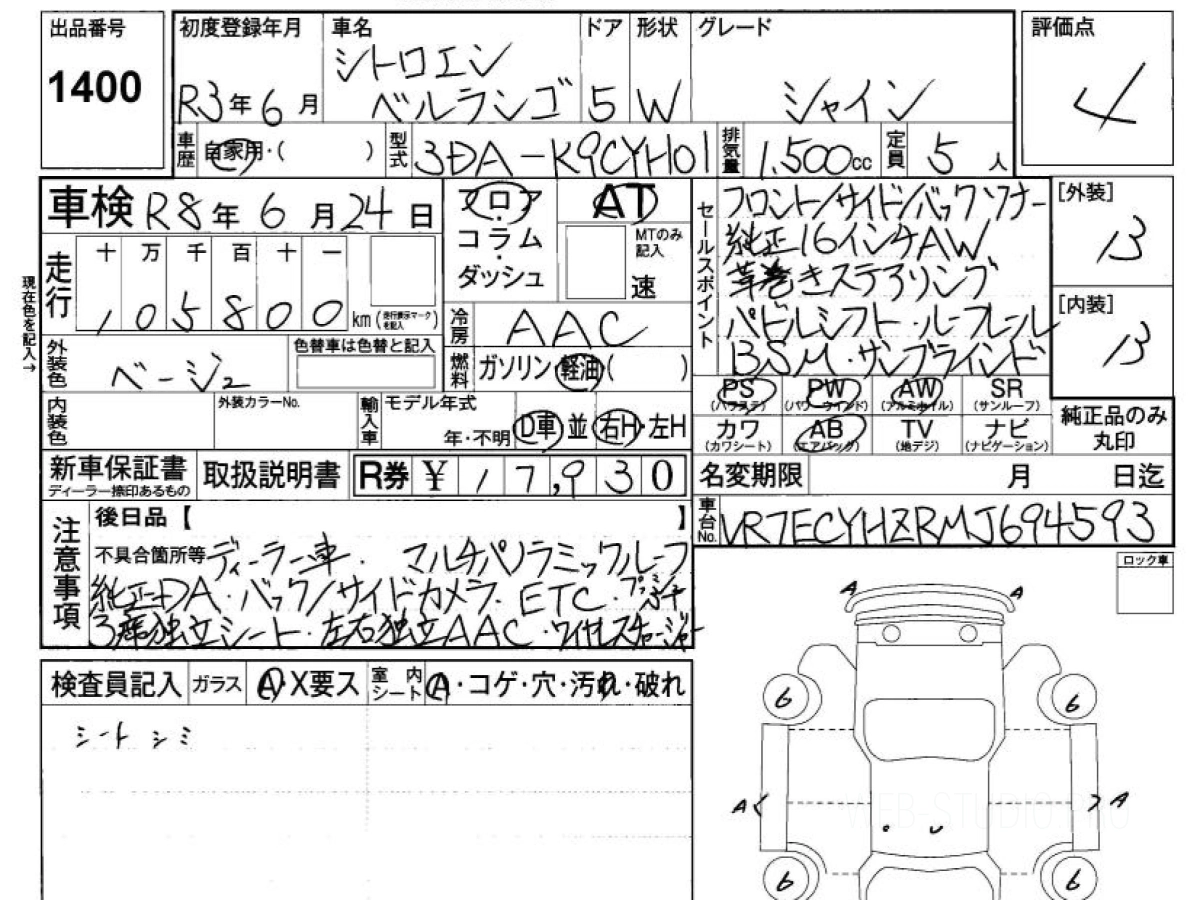 出品番号 1400
初度登録年月 R3年6月
車名 シトロエン ベルランゴ
ドア 5
形状 W
グレード シャイン
評価点 4
車歴 自家用・( )
型式 3DA-K9CYH01
排気量 1,500cc
定員 5人
車検 R8年6月24日
フロア・コラム・ダッシュ
AT
MTのみ記入
速
セールスポイント
フロント/サイド/バックソナー
純正16インチAW
革巻きステアリング
パドルシフト・ルーフレール
BSM・サンブラインド
[外装] 13
[内装] 13
現在色を記入→
走行 十 万 千 百 十 一
105800 km (走行表示マークを記入)
冷房 AAC
燃料 ガソリン・軽油( )
外装色 ベージュ
色替車は色替と記入
内装色
外装カラーNo.
輸入車 モデル年式 年・不明 D車 並 右H・左H
PS (パワステ) PW (パワーウインド) AW (アルミホイル) SR (サンルーフ)
カワ (カワシート) AB (エアバッグ) TV (地デジ) ナビ (ナビゲーション)
純正品のみ丸印
新車保証書 ディーラー捺印あるもの
取扱説明書
R券 ¥ 17,930
名変期限 月 日迄
車台No. VR7ECYHZRMJ694593
注意事項
後日品【 】
不具合箇所等 ディーラー車・マルチパノラミックルーフ
純正DA・バック/サイドカメラ・ETC・
3席独立シート・左右独立AAC・ワイヤレスチャージャー
ロック車
A A
検査員記入 ガラス A・X要ス 室内シート A・コゲ・穴・汚れ・破れ
シート シミ
6 6
A A
WEB-STUDIO.PRO
6 6